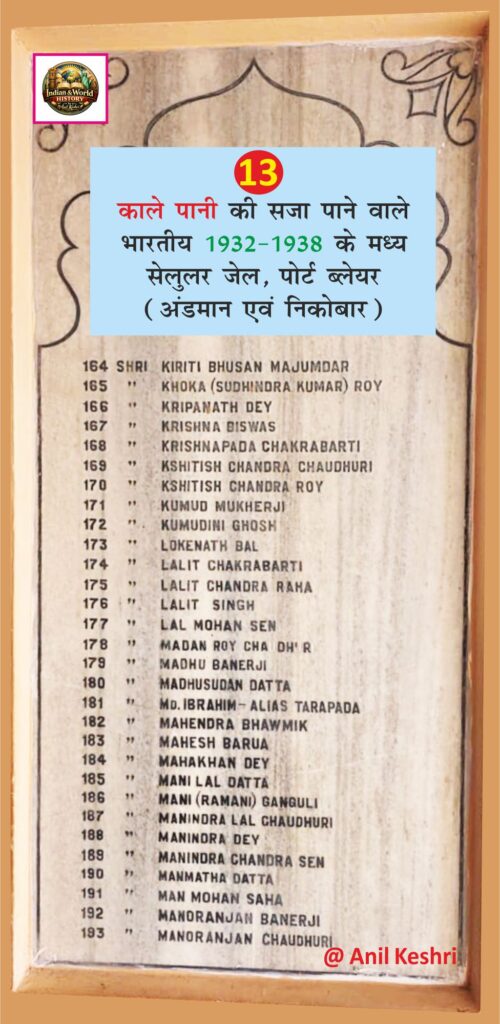 Indian & World
HISTORY
13
काले पानी की सजा पाने वाले
भारतीय 1932-1938 के मध्य
सेलुलर जेल, पोर्ट ब्लेयर
(अंडमान एवं निकोबार)
164 SHRI KIRITI BHUSAN MAJUMDAR
165 " KHOKA (SUDHINDRA KUMAR) ROY
166 " KRIPANATH DEY
167 " KRISHNA BISWAS
168 " KRISHNAPADA CHAKRABARTI
169 " KSHITISH CHANDRA CHAUDHURI
170 " KSHITISH CHANDRA ROY
171 " KUMUD MUKHERJI
172 " KUMUDINI GHOSH
173 " LOKENATH BAL
174 " LALIT CHAKRABARTI
175 " LALIT CHANDRA RAHA
176 " LALIT SINGH
177 " LAL MOHAN SEN
178 " MADAN ROY CHA DH'R
179 " MADHU BANERJI
180 " MADHUSUDAN DATTA
181 " MD. IBRAHIM- ALIAS TARAPADA
182 " MAHENDRA BHAWMIK
183 " MAHESH BARUA
184 " MAHAKHAN DEY
185 " MANI LAL DATTA
186 " MANI (RAMANI) GANGULI
187 " MANINDRA LAL CHAUDHURI
188 " MANINDRA DEY
189 " MANINDRA CHANDRA SEN
190 " MANMATHA DATTA
191 " MAN MOHAN SAHA
192 " MANORANJAN BANERJI
193 " MANORANJAN CHAUDHURI
@ Anil Keshri